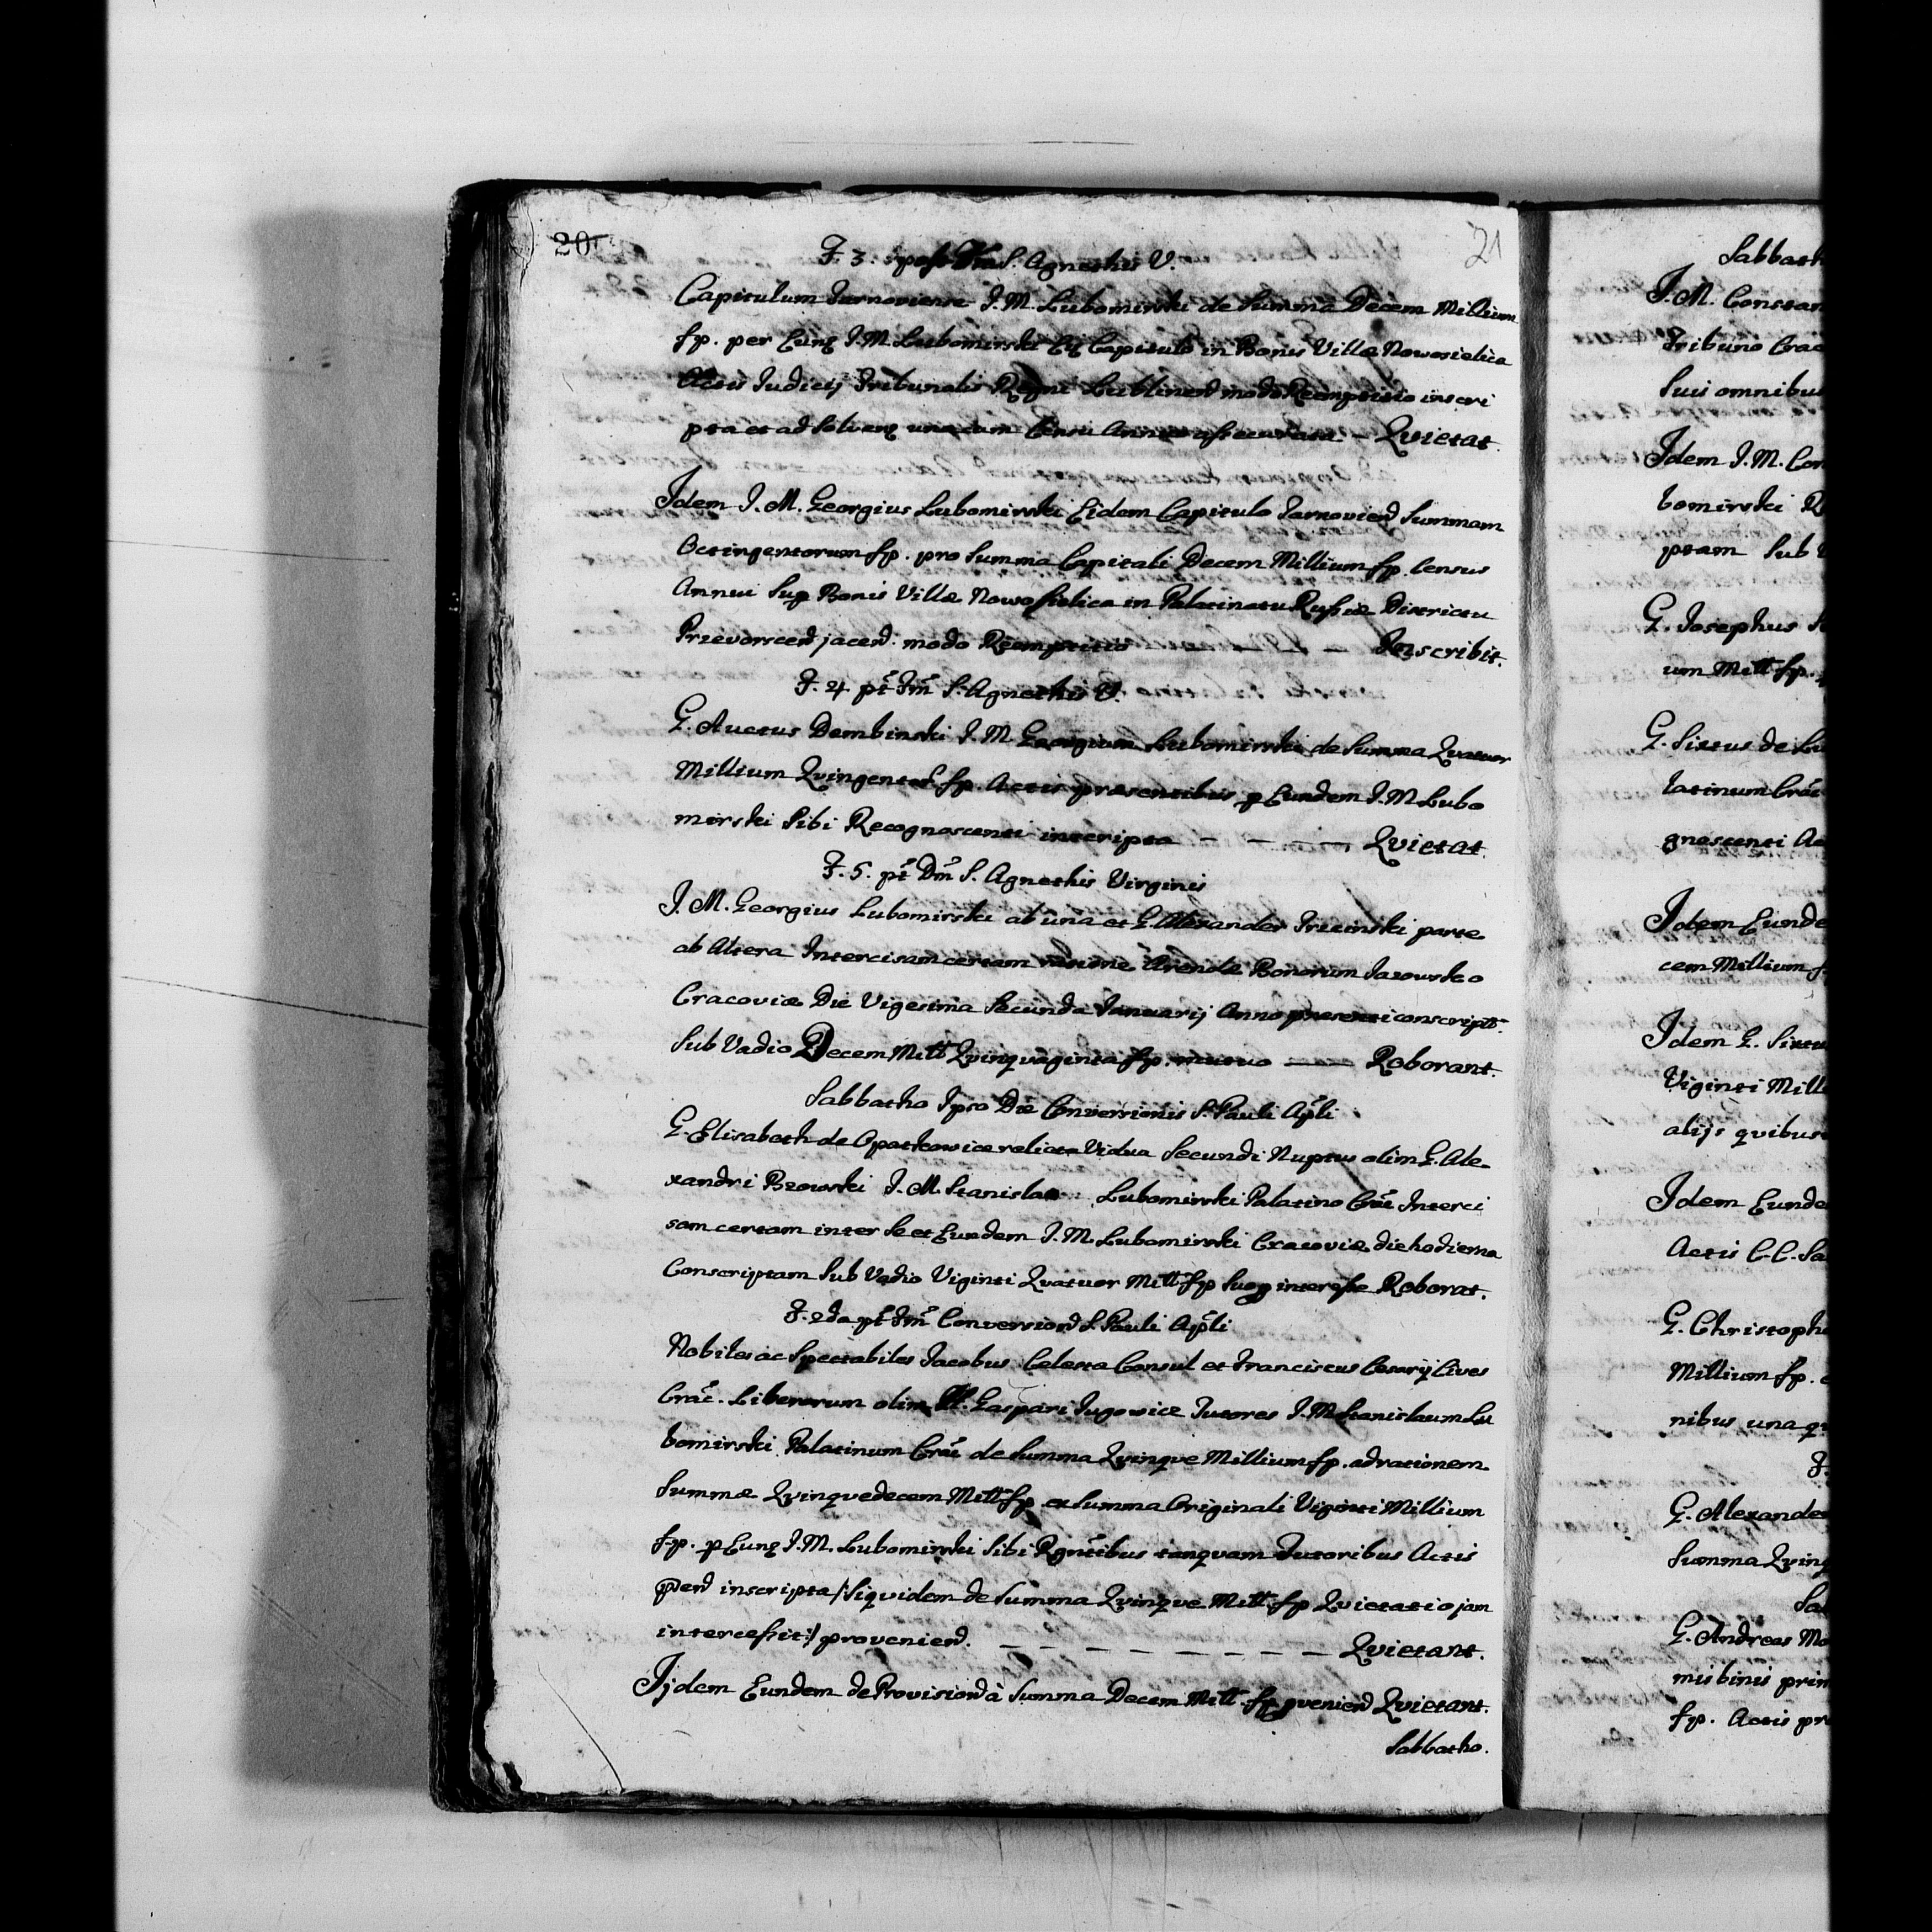 20
21
F. 3. post S. Agnethis V.
Capitulum Tarnoviense I. M. Lubomirski de Summa Decem Millium
fp. per Eunq I. M. Lubomirski Eiq Capitulo in Bonis Villæ Nowosielica
Actis Judicij Tribunalis Regni Lublinen modo Reemptitio inscri
pta et ad solvenq una cum Censu Annuo assecurata – Qvietat.
Idem I. M. Georgius Lubomirski Eidem Capitulo Tarnovien Summam
Octingentorum fp. pro Summa Capitali Decem Millium fp. Census
Annui Sup Bonis Villæ Nowosielica in Palatinatu Russiæ Districtu
Przevorscen jacen. modo Reemptitio – Inscribit.
F. 4. pt Fm S. Agnethis V.
G. Auctus Dembinski I. M. Georgium Lubomirski de Summa Qvatuor
Millium Qvingentor fp. Actis præsentibus p Eundem I. M. Lubo
mirski Sibi Recognoscenti inscripta – – – – Qvietat.
F. 5. pt Dm S. Agnethis Virginis
I. M. Georgius Lubomirski ab una et G. Alexander Trzcinski parte
ab Altera Intercisam certam ratione Arendæ Bonorum Jazowsko
Cracoviæ Die Vigesima Secunda Januarij Anno præsenti conscript.
Sub Vadio Decem Mill Qvinqvaginta fp. mutuo — Roborant.
Sabbatho Ipso Die Conversionis S. Pauli Apli
G. Elisabeth de Opatkowice relicta Vidua Secundi Nuptus olim G. Ale-
xandri Bzowski I. M. Stanislao Lubomirski Palatino Crac Interci
sam certam inter Se et Eundem I. M. Lubomirski Cracoviæ die hodierna
Conscriptam Sub Vadio Viginti Qvatuor Mill fp Suoq interesse Roborat.
F. 2da pt Fm Conversion S. Pauli Apli
Nobiles ac Spectabiles Jacobus Celesta Consul et Franciscus Cesarij Cives
Crac. Liberorum olim Gaspari Jugowice Tutores I. M. Stanislaum Lu
bomirski Palatinum Crac de Summa Qvinqve Millium fp. ad rationem
Summæ Qvinqvedecem Mill fp ex Summa Originali Viginti Millium
fp. p Eunq I. M. Lubomirski Sibi Rgntibus tanqvam Tutoribus Actis
pen inscripta /:Siqvidem de Summa Qvinqve Mill fp Qvietatio jam
intercessit:/ provenien. – – – – – – – – Qvietant.
Ijdem Eundem de Provision à Summa Decem Mill. fp pvenien Qvietant.
Sabbatho.
Sabbath
I. M. Constan
Tribuno Crac
Suis omnibu
Idem I. M. Con
bomirski R
ptam Sub
G. Josephus
um Mill fp.
G. Sixtus de Lu
latinum Crac
gnoscenti Ac
Idem Eunde
cem Millium f
Idem G. Sixtu
Viginti Mill
alijs qvibus
Idem Eunde
Actis C. C. Sa
G. Christoph
Millium fp.
nibus una q
F.
G. Alexander
Summa Qvinq
Sa
G. Andreas Mo
mis binis prin
fp. Actis pr